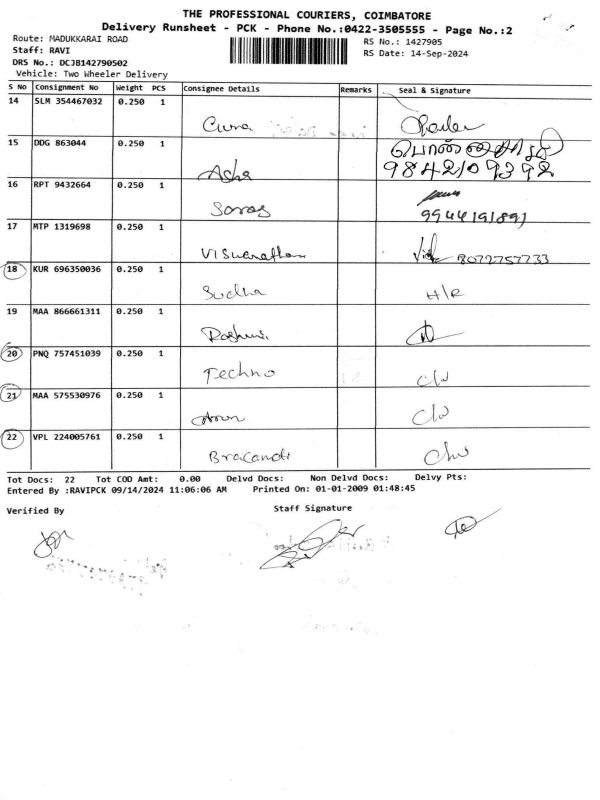 THE PROFESSIONAL COURIERS, COIMBATORE
Delivery Runsheet - PCK - Phone No.:0422-3505555 - Page No.:2
Route: MADUKKARAI ROAD
RS No.: 1427905
Staff: RAVI
RS Date: 14-Sep-2024
DRS No.: DCJB142790502
Vehicle: Two Wheeler Delivery
S No Consignment No Weight PCS Consignee Details Remarks Seal & Signature
14 SLM 354467032 0.250 1
15 DDG 863044 0.250 1 பொன்
Asha 9842109392
16 RPT 9432664 0.250 1
Saras 9944191891
17 MTP 1319698 0.250 1
8072757733
18 KUR 696350036 0.250 1
Sudha H/R
19 MAA 866661311 0.250 1
Roshini
20 PNQ 757451039 0.250 1
Techno
21 MAA 575530976 0.250 1
22 VPL 224005761 0.250 1
Tot Docs: 22 Tot COD Amt: 0.00 Delvd Docs: Non Delvd Docs: Delvy Pts:
Entered By :RAVIPCK 09/14/2024 11:06:06 AM Printed On: 01-01-2009 01:48:45
Verified By Staff Signature